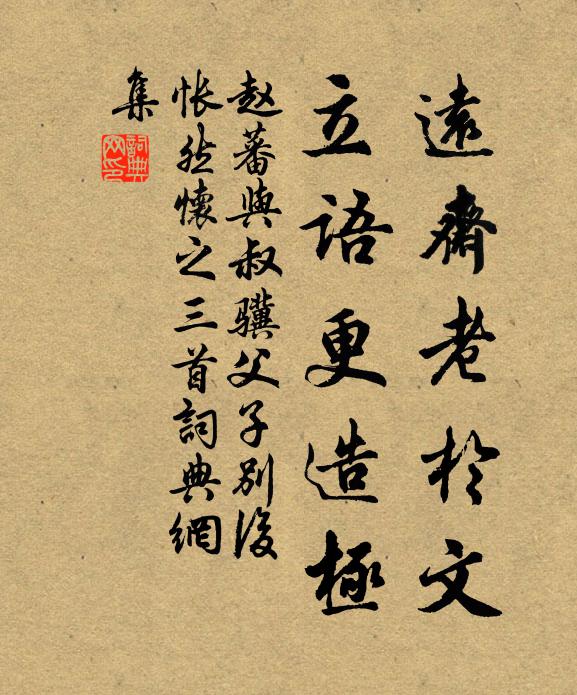 遠齋老於文
立語更造極
赵蕃與叔骥父子別後
怅然懷之三首詞典網
集
詞典网印